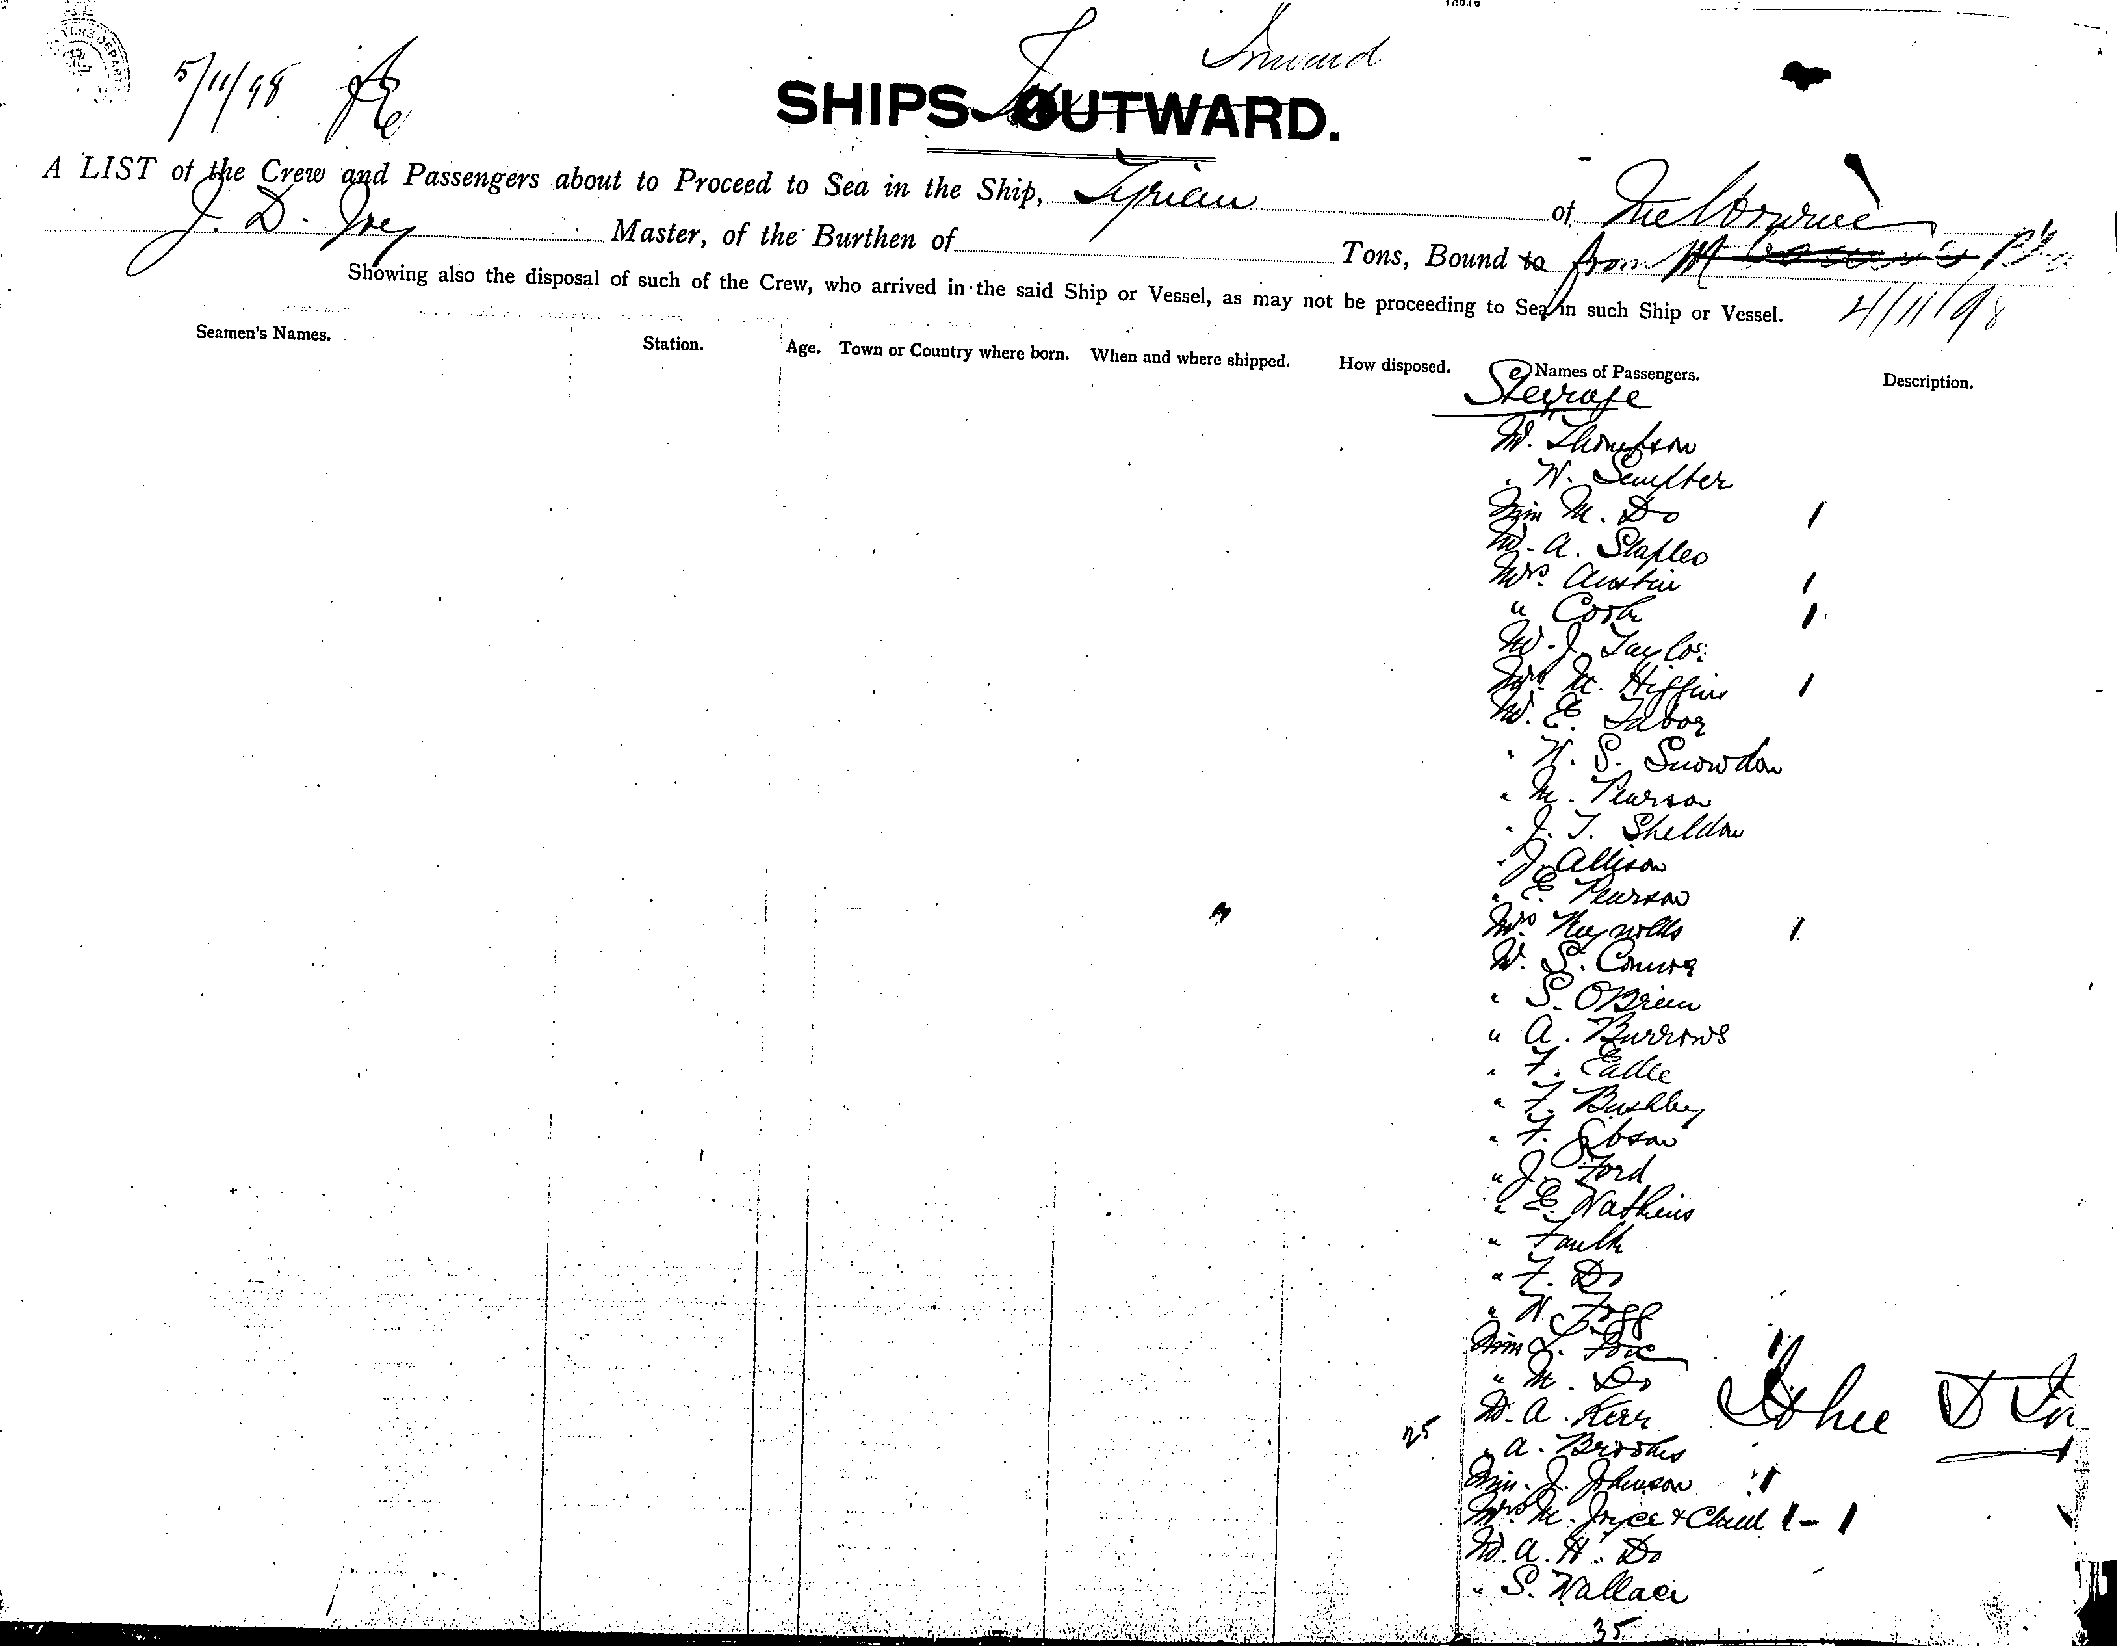 Inward
5/11/98
SHIPS OUTWARD.
A LIST of the Crew and Passengers about to Proceed to Sea in the Ship, Tyrian of Melbourne
J. D. Master, of the Burthen of Tons, Bound to from
Showing also the disposal of such of the Crew, who arrived in the said Ship or Vessel, as may not be proceeding to Sea in such Ship or Vessel. 4/11/98
Seamen's Names. Station. Age. Town or Country where born. When and where shipped. How disposed. Names of Passengers. Description.
Steerage
Mr. Thompson
" W.
Miss M. Do 1
Mr. A. Staples
Mrs. Austin 1
" Cook 1
Mr. J. Taylor
Mrs M. Higgins 1
Mr. E. Tabor
" W. S. Snowdon
" M. Pearson
" J. T. Sheldon
" J. Allison
" E. Pearson
Mrs Reynolds 1
Mr. S.
" S. O'Brien
" A. Burrows
" F. Eadie
" F. Bushby
" F. Gibson
" J. Ford
" E. Watkins
" Faulk
" F. Do
" W. Fogg
Miss L. 1
" M. Do 1
Mr. A. Kerr
25
" A. Brookes
Miss. J. Johnson 1
Mrs M. Joyce & Child 1 - 1
Mr. A. H. Do
" S. Wallace
35